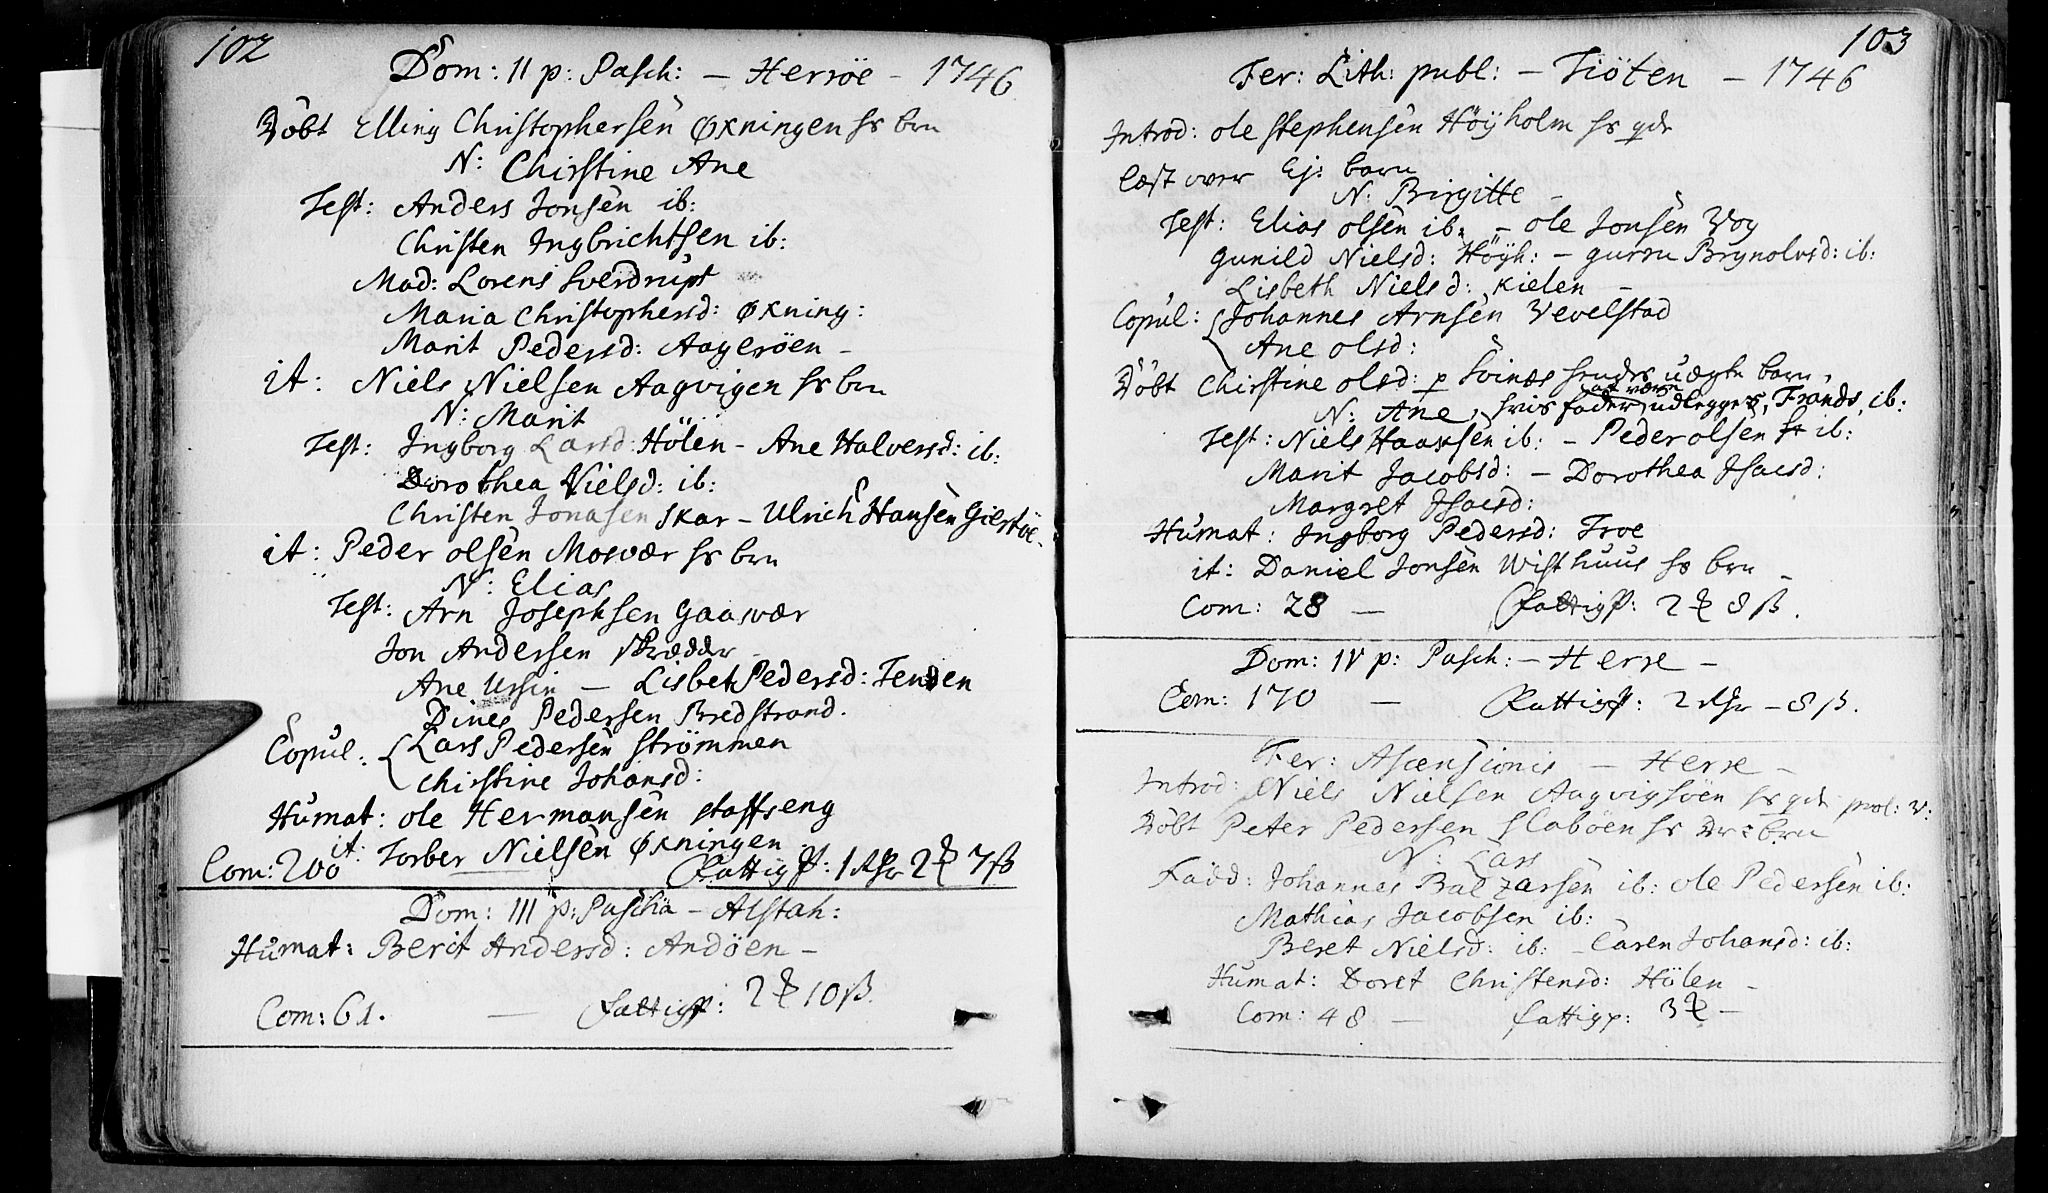 102
Dom: II p: Pasch: – Herröe – 1746
Döbt Elling Christophersen Øxningen hs brn
N: Chirstine Ane
Test: Anders Jonsen ib:
Christen Ingbrichtsen ib:
Mad: Lorens Sverdrups
Maria Christophersd: Øxning:
Marit Pedersd: Aagerøen –
it: Niels Nielsen Aagvigen hs brn
N: Marit
Test: Ingborg Larsd: Hölen – Ane Halversd: ib:
Dorothea Nielsd: ib:
Christen Jonasen Skar – Ulrich Hansen Gierköe –
it: Peder olsen Mosvær hs brn
N: Elias
Test: Arn Josephsen Gaasvær
Jon Andersen Skrædder
Ane Ursin – Lisbet Pedersd: Tenden
Dines Pedersen Bredstrand.
Copul: Lars Pedersen Strömmen
Chirstine Johansd:
Humat: ole Hermansen Staffseng
it: Torber Nielsen Øxningen
Com: 200 Fattigp: 1 2 7 ß
Dom: III p: Pascha – Alstah:
Humat: Berit Andersd: Andöen –
Com: 61. – Fattigp: 2 10 ß.
103
Fer: Lith: publ: – Tiöten – 1746
Introd: ole Stephensen Höyholm hs qde
Læst over Ej: barn
N: Birgitte –
Test: Elias olsen ib: – ole Jonsen Vog
Gunild Nielsd: Höyh: – gurru Brynolvsd: ib:
Lisbeth Nielsd: Kielen –
Copul: Johannes Arnsen Vevelstad
Ane olsd:
Döbt Chirstine olsd: p Svinæs hendes uægte barn,
at være
N: Ane, hvis fader udlegges, Frands, ib:
Test: Niels Haagsen ib: – Peder olsen ib:
Marit Jacobsd: – Dorothea Isacsd:
Margret Isacsd:
Humat: Ingborg Pedersd: Troe
it: Daniel Jonsen Wisthuus hs brn –
Com: 28 – Fattigp: 2 8 ß.
Dom: IV p: Pasch: – Herre –
Com: 170 – Fattigp: 2 – 8 ß.
Fer: Ascensionis – Herre –
Introd: Niels Nielsen Aagvigsöen hs qde
Döbt Peter Pedersen Slabøen hs brn
N: Lars
Fadd: Johannes Balzersen ib: ole Pedersen ib:
Mathias Jacobsen ib:
Beret Nielsd: ib: – Caren Johansd: ib:
Humat: Doret Christensd: Hölen –
Com: 48 – fattigp: 3 –